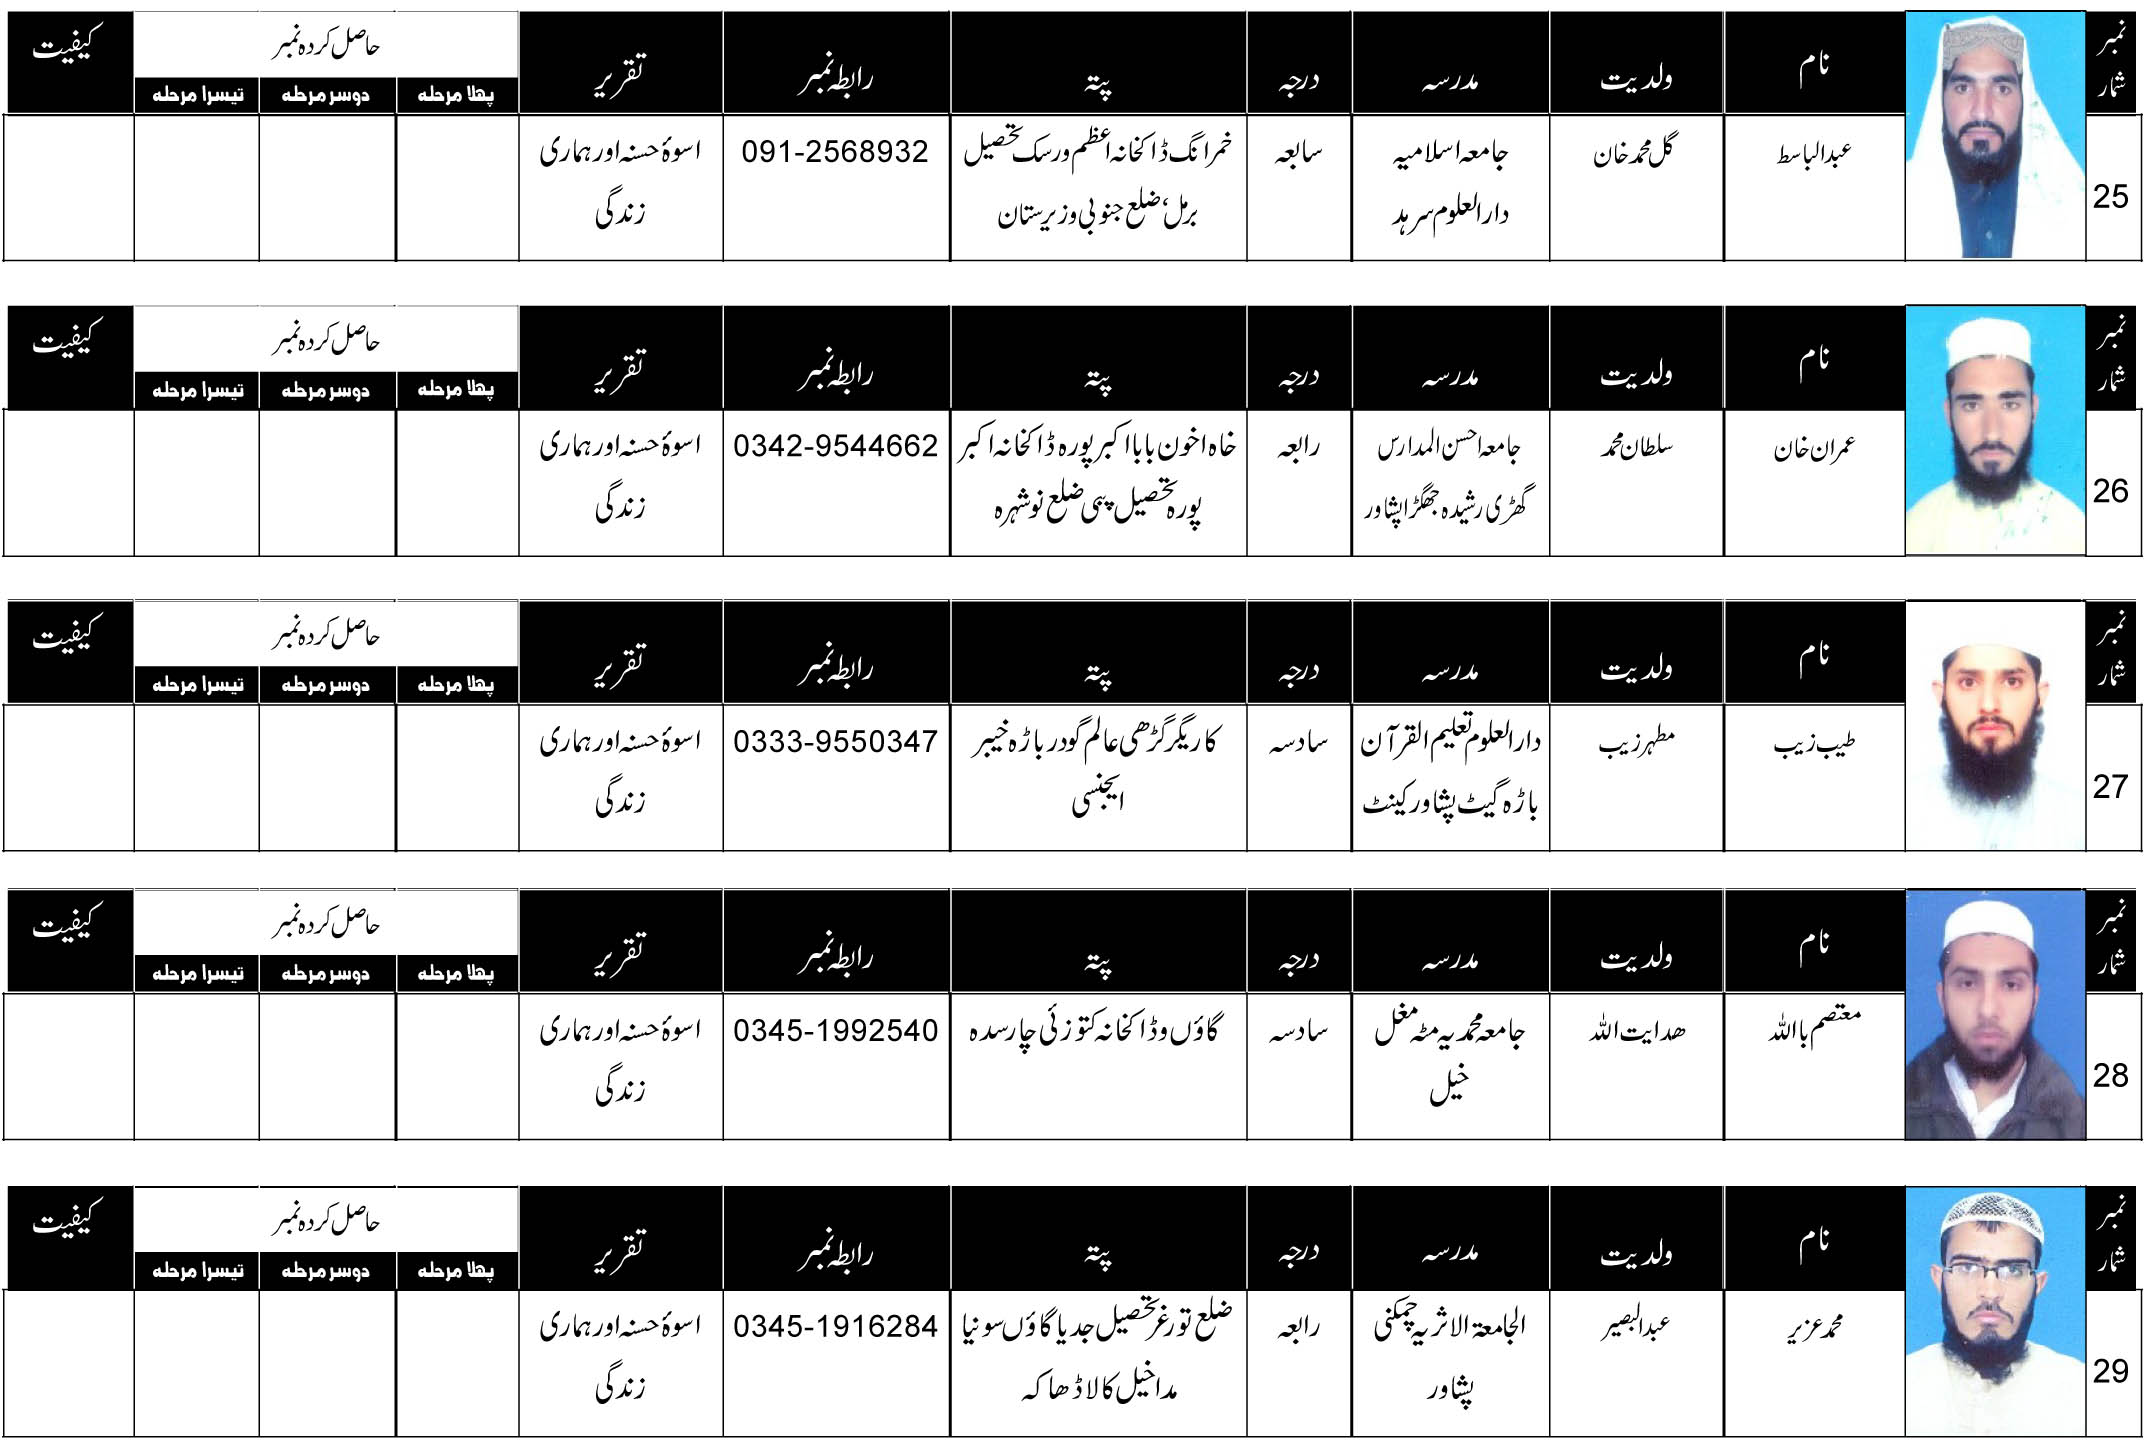 نمبر شمار
نام
ولدیت
مدرسہ
درجہ
پتہ
رابطہ نمبر
تقریر
حاصل کردہ نمبر
پھلا مرحلہ
دوسر مرحلہ
تیسرا مرحلہ
کیفیت
25
عبدالباسط
گل محمد خان
جامعہ اسلامیہ
دارالعلوم سرہد
سابعہ
خمرانگ ڈاکخانہ اعظم ورسک تحصیل
برمل، ضلع جنوبی وزیرستان
091-2568932
اسوۂ حسنہ اور ہماری
زندگی
نمبر شمار
نام
ولدیت
مدرسہ
درجہ
پتہ
رابطہ نمبر
تقریر
حاصل کردہ نمبر
پھلا مرحلہ
دوسر مرحلہ
تیسرا مرحلہ
کیفیت
26
عمران خان
سلطان محمد
جامعہ احسن المدارس
گھڑی رشیدہ جھگڑا پشاور
رابعہ
خاہ اخون بابا اکبر پورہ ڈاکخانہ اکبر
پورہ تحصیل پبی ضلع نوشہرہ
0342-9544662
اسوۂ حسنہ اور ہماری
زندگی
نمبر شمار
نام
ولدیت
مدرسہ
درجہ
پتہ
رابطہ نمبر
تقریر
حاصل کردہ نمبر
پھلا مرحلہ
دوسر مرحلہ
تیسرا مرحلہ
کیفیت
27
طیب زیب
مطہر زیب
دارالعلوم تعلیم القرآن
باڑہ گیٹ پشاور کینٹ
سادسہ
کاریگر گڑھی عالم گودر باڑہ خیبر
ایجنسی
0333-9550347
اسوۂ حسنہ اور ہماری
زندگی
نمبر شمار
نام
ولدیت
مدرسہ
درجہ
پتہ
رابطہ نمبر
تقریر
حاصل کردہ نمبر
پھلا مرحلہ
دوسر مرحلہ
تیسرا مرحلہ
کیفیت
28
معتصم بااللہ
ھدایت اللہ
جامعہ محمدیہ مٹہ مغل
خیل
سادسہ
گاؤں و ڈاکخانہ کتوزئی چارسدہ
0345-1992540
اسوۂ حسنہ اور ہماری
زندگی
نمبر شمار
نام
ولدیت
مدرسہ
درجہ
پتہ
رابطہ نمبر
تقریر
حاصل کردہ نمبر
پھلا مرحلہ
دوسر مرحلہ
تیسرا مرحلہ
کیفیت
29
محمد عزیر
عبدالبصیر
الجامعۃ الاثریہ چمکنی
پشاور
رابعہ
ضلع تورغر تحصیل جدبا گاؤں سونیا
مداخیل کالا ڈھاکہ
0345-1916284
اسوۂ حسنہ اور ہماری
زندگی